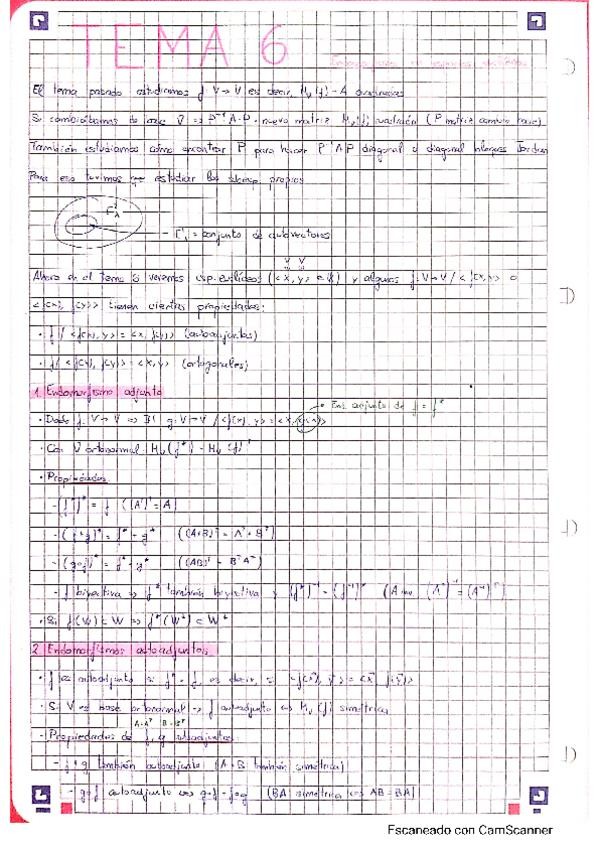 TEMA 6
El tema pasado estudiamos f: V → V es decir, M_V(f) = A cuadradas
Si cambiábamos de base V̄ ⇒ P⁻¹·A·P = nueva matriz M_V(f) (P matriz cambio base)
También estudiamos cómo encontrar P para hacer P⁻¹AP diagonal o diagonal bloques Jordan
Para eso tuvimos que estudiar los propios
= conjunto de autovectores
Ahora en el tema 6 veremos esp. euclídeos (<x, y> ) y algunos f: V→V / <f(x), y> o
<f(x), f(y)> tienen ciertas propiedades:
· f / <f(x), y> = <x, f(y)> (autoadjuntos)
· f / <f(x), f(y)> = <x, y> (ortogonales)
1. Endomorfismo adjunto
· Dado f: V→V ⇒ ∃! g: V→V / <f(x), y> = <x, g(y)>
adjunto de f = f*
· Con V ortonormal: M_V(f*) = M_V(f)ᵗ
· Propiedades
- (f*)* = f ((Aᵗ)ᵗ = A)
- (f+g)* = f* + g* ((A+B)ᵗ = Aᵗ + Bᵗ)
- (g∘f)* = f* ∘ g* ((AB)ᵗ = BᵗAᵗ)
- f biyectiva ⇒ f* también biyectiva y (f*)⁻¹ = (f⁻¹)* (A inv. (Aᵗ)⁻¹ = (A⁻¹)ᵗ)
· Si f(W) ⊂ W ⇒ f*(W⊥) ⊂ W⊥
2. Endomorfismos autoadjuntos
· f es autoadjunto si f* = f, es decir, <f(x), y> = <x, f(y)>
· Si V es base ortonormal ⇒ f autoadjunto ⇔ M_V(f) simétrica
A=Aᵗ B=Bᵗ
· Propiedades de f, g autoadjuntos:
- f+g también autoadjunto (A+B también simétrica)
- g∘f autoadjunto ⇔ g∘f = f∘g (BA simétrica ⇔ AB=BA)
Escaneado con CamScanner